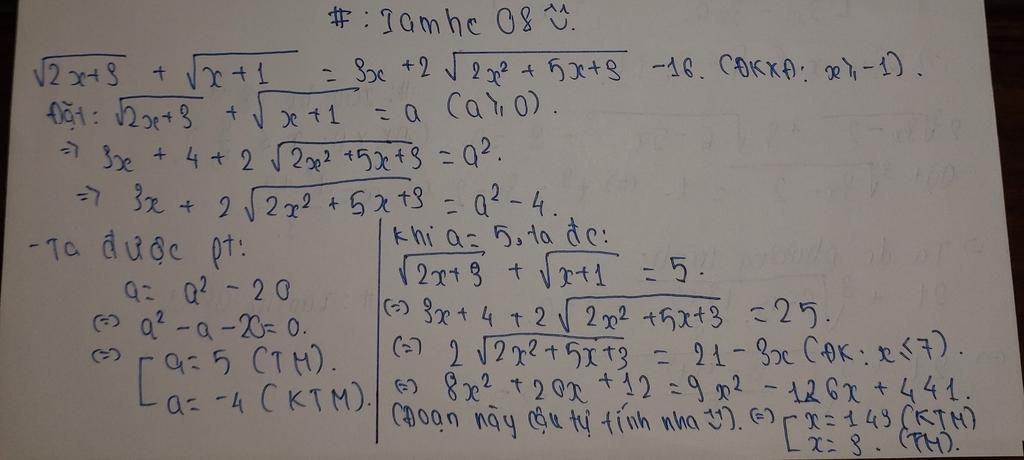 #: Iamhc 08 ツ.
√(2x+3) + √(x+1) = 3x + 2√(2x² + 5x+3) -16. (ĐKXĐ: x≥-1).
Đặt: √(2x+3) + √(x+1) = a (a≥0).
=> 3x + 4 + 2√(2x² +5x+3) = a².
=> 3x + 2√(2x² + 5x+3) = a² - 4.
-Ta được pt:
a= a² - 20
(=) a² -a -20=0.
(=) [ a= 5 (TM).
a= -4 (KTM).
Khi a= 5, ta đc:
√(2x+3) + √(x+1) = 5.
(=) 3x+ 4 + 2√(2x² +5x+3) = 25.
(=) 2√(2x²+5x+3) = 21 - 3x (ĐK: x≤7).
(=) 8x² +20x +12 =9x² -126x + 441.
(Đoạn này cậu tự tính nha ツ). (=) [ x=143 (KTM)
x= 3. (TM).